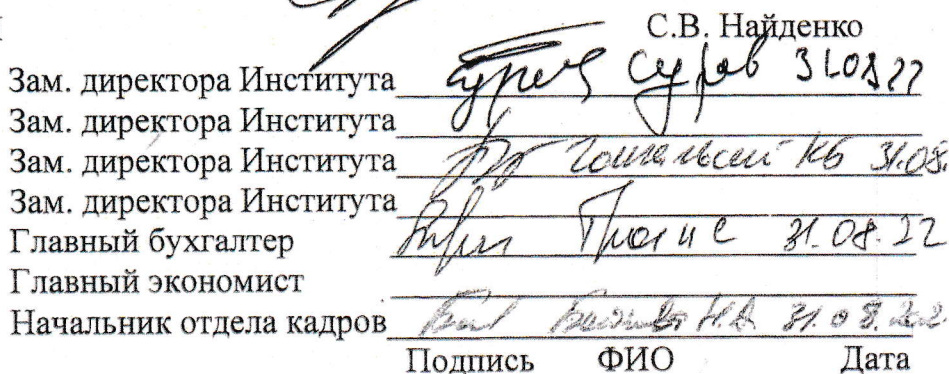 С.В. Найденко
Зам. директора Института Суров 31.08.22
Зам. директора Института
Зам. директора Института КБ 31.08.
Зам. директора Института
Главный бухгалтер 31.08.22
Главный экономист
Начальник отдела кадров Н.В. 31.08.2022
Подпись ФИО Дата